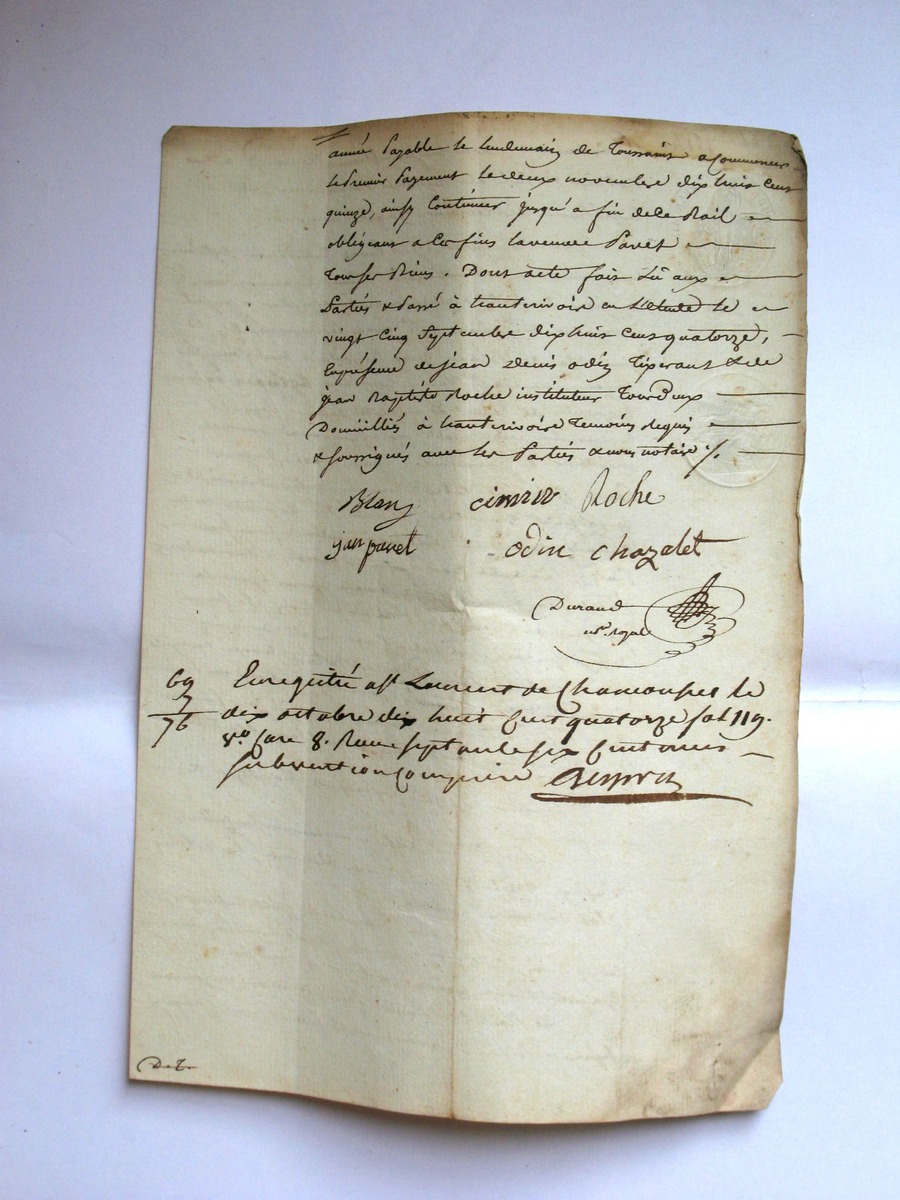 année payable le lendemain de Toussaint a Commencer
le Premier Payement le deux novembre dix huit Cent
quinze, ainsy Continuer jusqu'a fin de ce Bail
obligeant a Ces fins la veuve Pavet
Tour ses Biens. Dont acte fait Lû aux
Parties & Passé à hauterivoire en L'Etude le
vingt Cinq Septembre dix huit Cent quatorze,
En présence de jean denis odin Tixerant & de
jean Baptiste Roche instituteur Tour Deux
Domiciliés à hauterivoire Temoins requis
& soussignés avec les Parties & nous notaire
Blanc Roche
pavet odin chazalet
Durand
nre. royal
69
7
76
Enregistré a St Laurent de Chamousset le
dix octobre dix huit Cent quatorze fol 119.
vo Case 8. Reçu Sept
subvention Comprise